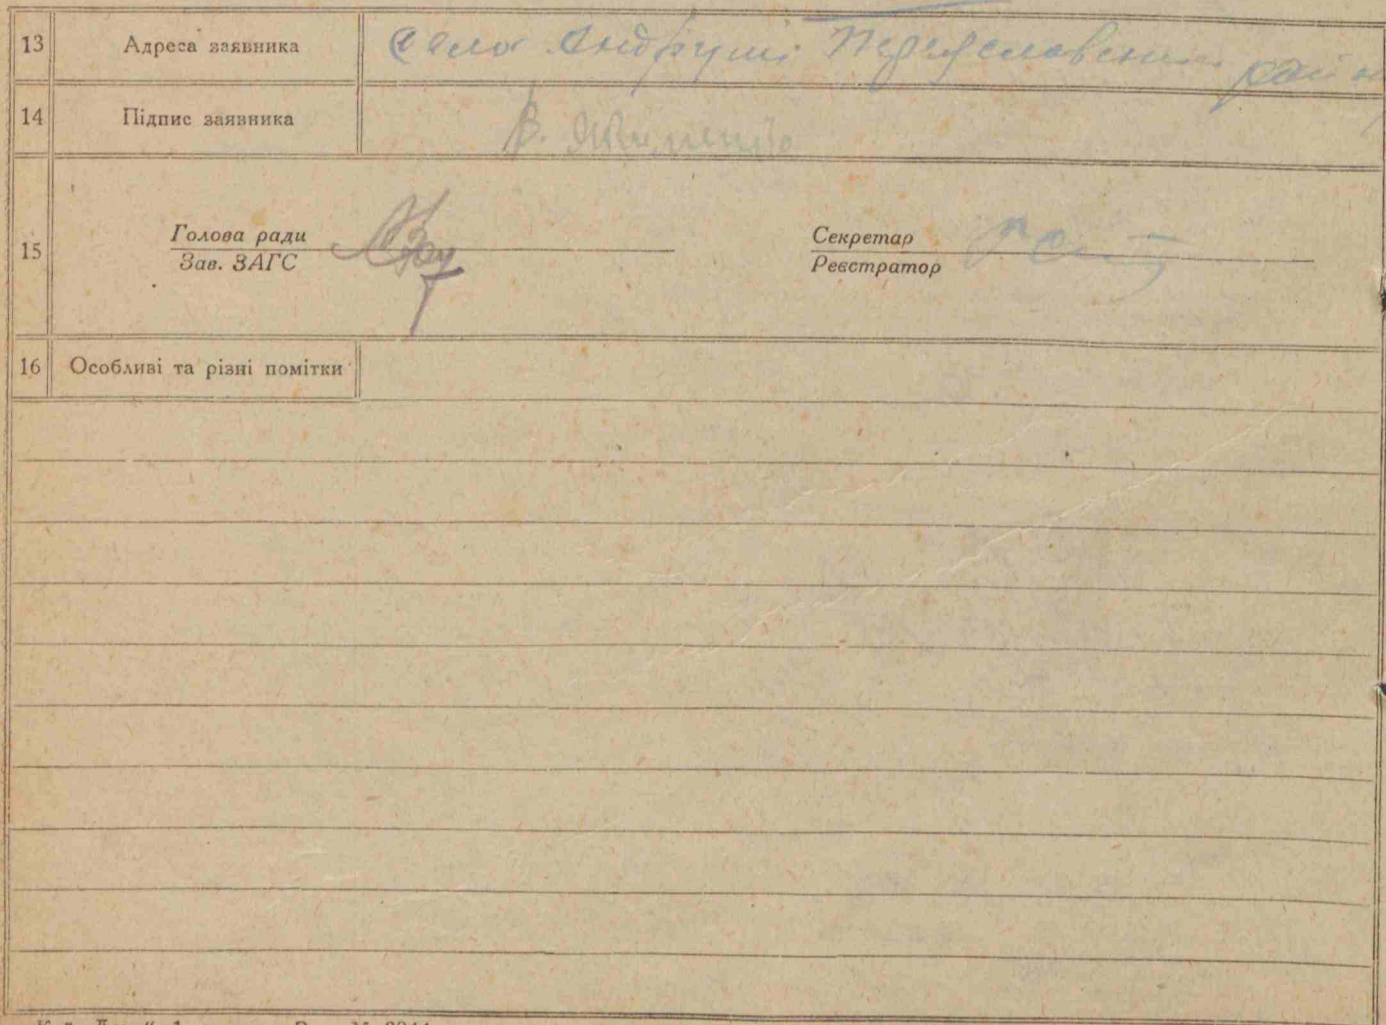 13 Адреса заявника село Андруші Переяславський район
14 Підпис заявника В.
15 Голова ради Секретар
Зав. ЗАГС Реєстратор
16 Особливі та різні помітки